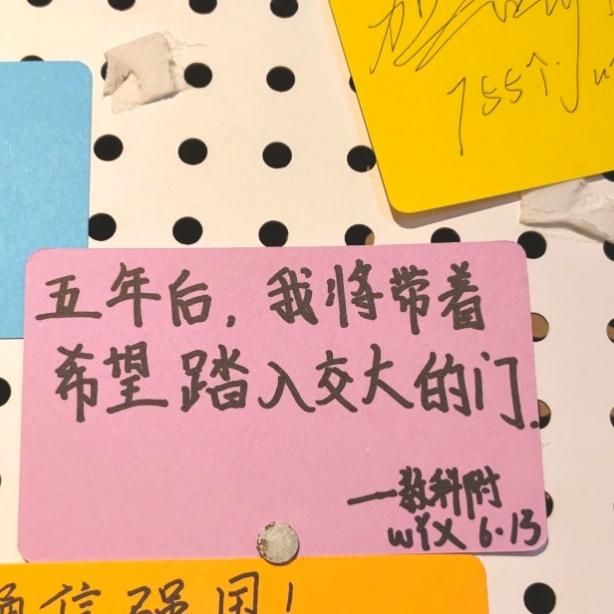 155个
五年后，我将带着
希望踏入交大的门.
——教科附
WYX 6.13
通信强国！